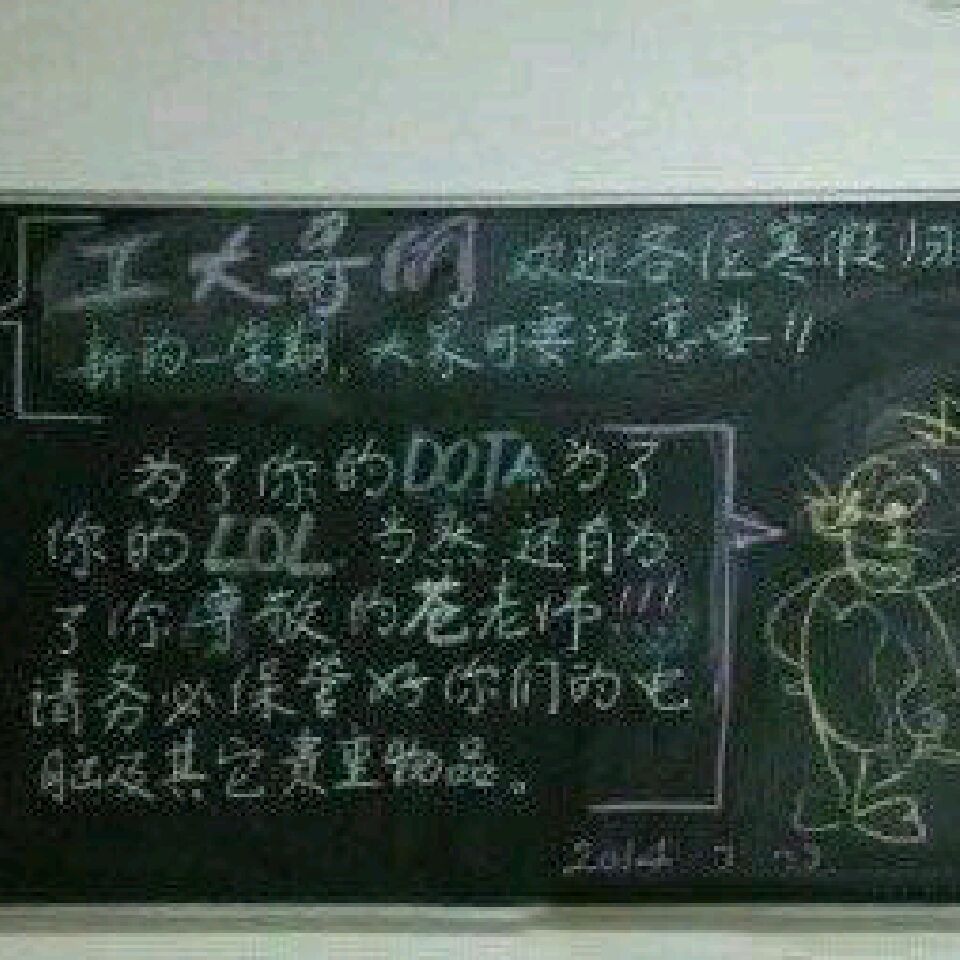 工大哥的 欢迎各位寒假归
新的一学期,大家可要注意哇!!
为了你的DOTA为了
你的LOL 当然,还有为
了你尊敬的苍老师!!!
请务必保管好你们的电
脑及其它贵重物品。
2014